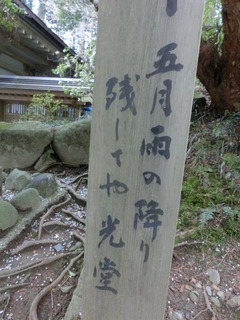 五月雨の降り
残してや光堂